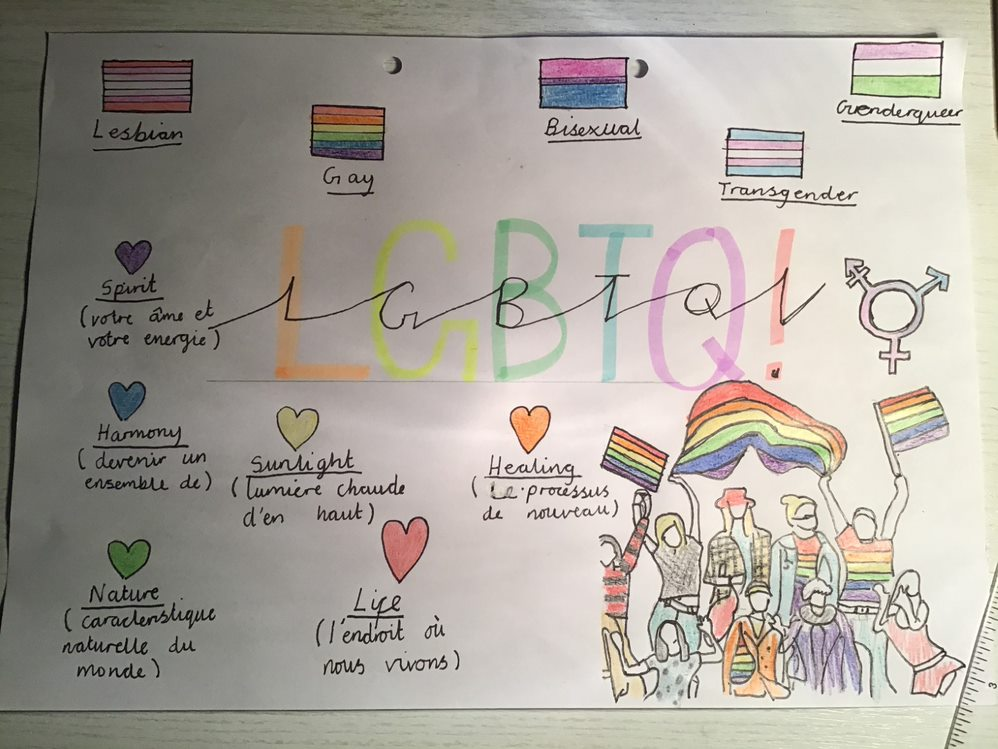 Lesbian
Gay
Bisexual
Transgender
Genderqueer
LGBTQ!
LGBTQ!
Spirit
(votre âme et
votre energie)
Harmony
(devenir un
ensemble de)
Sunlight
(lumière chaude
d'en haut)
Healing
(Le processus
de nouveau)
Nature
(caractéristique
naturelle du
monde)
Life
(l'endroit où
nous vivons)
3